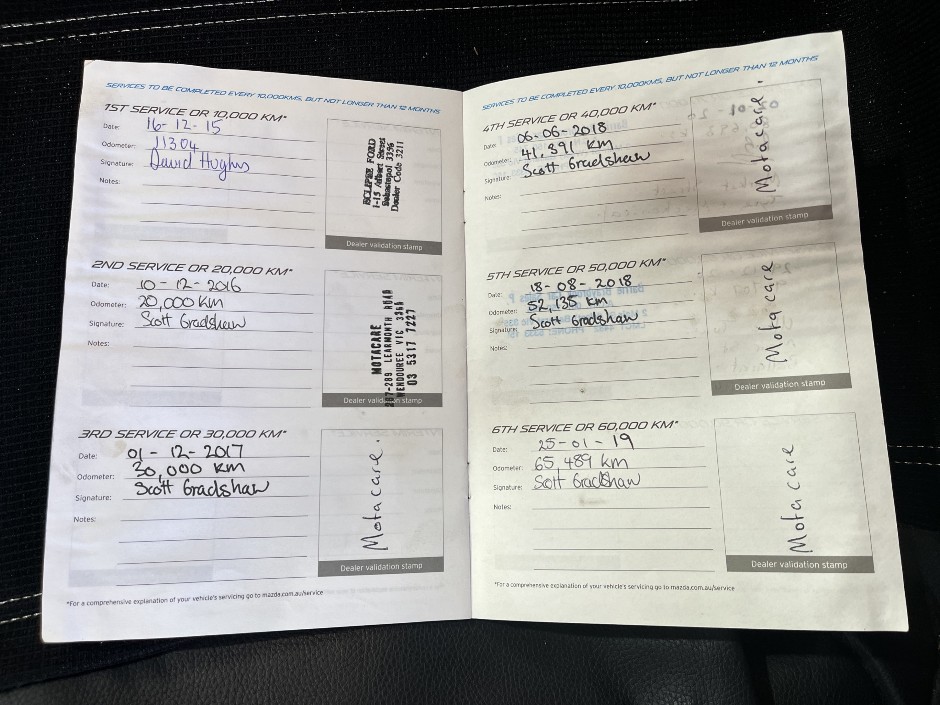 SERVICES TO BE COMPLETED EVERY 10,000KMS, BUT NOT LONGER THAN 12 MONTHS
1ST SERVICE OR 10,000 KM*
Date: 16-12-15
Odometer: 11304
Signature: David Hughes
Notes:
ECLIPSE FORD
1-15 Albert Street
Sebastopol 3356
Dealer Code 3211
Dealer validation stamp
2ND SERVICE OR 20,000 KM*
Date: 10-12-2016
Odometer: 20,000 KM
Signature: Scott Gradshaw
Notes:
MOTACARE
LEARMONTH ROAD
WENDOUREE VIC
03 5317 7227
Dealer validation stamp
3RD SERVICE OR 30,000 KM*
Date: 01-12-2017
Odometer: 30,000 KM
Signature: Scott Gradshaw
Notes:
Motacare.
Dealer validation stamp
*For a comprehensive explanation of your vehicle's servicing go to mazda.com.au/service
SERVICES TO BE COMPLETED EVERY 10,000KMS, BUT NOT LONGER THAN 12 MONTHS
4TH SERVICE OR 40,000 KM*
Date: 06-06-2018
Odometer: 41,391 KM
Signature: Scott Gradshaw
Notes:
Motacare.
Dealer validation stamp
5TH SERVICE OR 50,000 KM*
Date: 18-08-2018
Odometer: 52,135 km
Signature: Scott Gradshaw
Notes:
Motacare
Dealer validation stamp
6TH SERVICE OR 60,000 KM*
Date: 25-01-19
Odometer: 65,489 km
Signature: Scott Gradshaw
Notes:
Motacare
Dealer validation stamp
*For a comprehensive explanation of your vehicle's servicing go to mazda.com.au/service